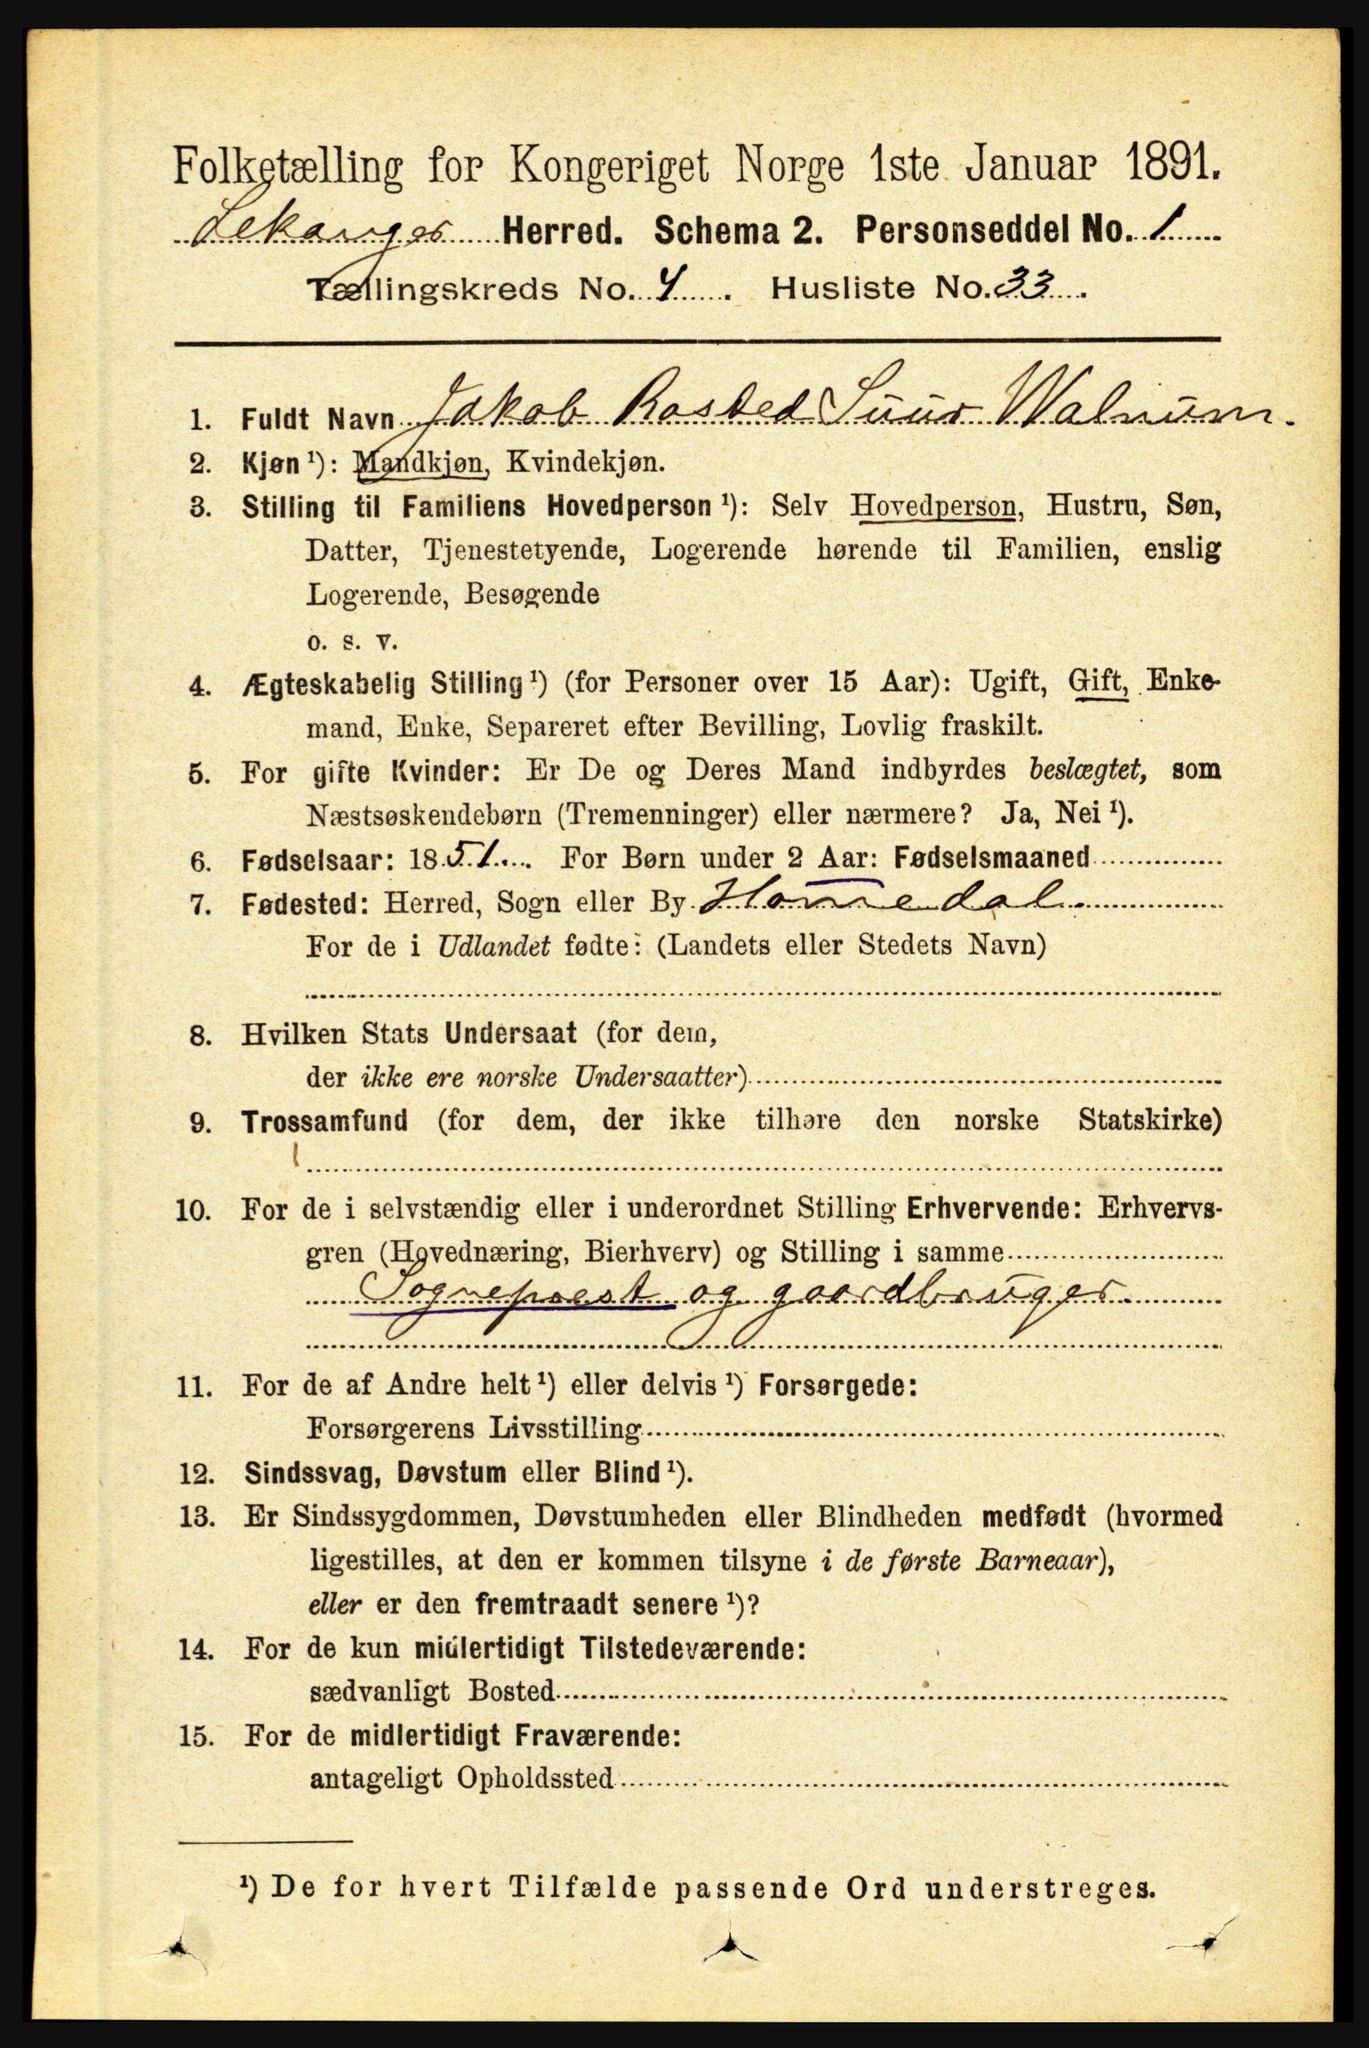 Folketælling for Kongeriget Norge 1ste Januar 1891.
Lekanger Herred. Schema 2. Personseddel No. 1
Tællingskreds No. 4. Husliste No. 33.
1. Fuldt Navn Jakob Rosted Suur Walnum.
2. Kjøn ¹): Mandkjøn, Kvindekjøn.
3. Stilling til Familiens Hovedperson ¹): Selv Hovedperson, Hustru, Søn,
Datter, Tjenestetyende, Logerende hørende til Familien, enslig
Logerende, Besøgende
o. s. v.
4. Ægteskabelig Stilling ¹) (for Personer over 15 Aar): Ugift, Gift, Enke-
mand, Enke, Separeret efter Bevilling, Lovlig fraskilt.
5. For gifte Kvinder: Er De og Deres Mand indbyrdes beslægtet, som
Næstsøskendebørn (Tremenninger) eller nærmere? Ja, Nei ¹).
6. Fødselsaar: 1851. For Børn under 2 Aar: Fødselsmaaned
7. Fødested: Herred, Sogn eller By Homedal.
For de i Udlandet fødte: (Landets eller Stedets Navn)
8. Hvilken Stats Undersaat (for dem,
der ikke ere norske Undersaatter)
9. Trossamfund (for dem, der ikke tilhøre den norske Statskirke)
10. For de i selvstændig eller i underordnet Stilling Erhvervende: Erhvervs-
gren (Hovednæring, Bierhverv) og Stilling i samme
Sognepræst og gaardbruger.
11. For de af Andre helt ¹) eller delvis ¹) Forsørgede:
Forsørgerens Livsstilling
12. Sindssvag, Døvstum eller Blind ¹).
13. Er Sindssygdommen, Døvstumheden eller Blindheden medfødt (hvormed
ligestilles, at den er kommen tilsyne i de første Barneaar),
eller er den fremtraadt senere ¹)?
14. For de kun midlertidigt Tilstedeværende:
sædvanligt Bosted
15. For de midlertidigt Fraværende:
antageligt Opholdssted
¹) De for hvert Tilfælde passende Ord understreges.